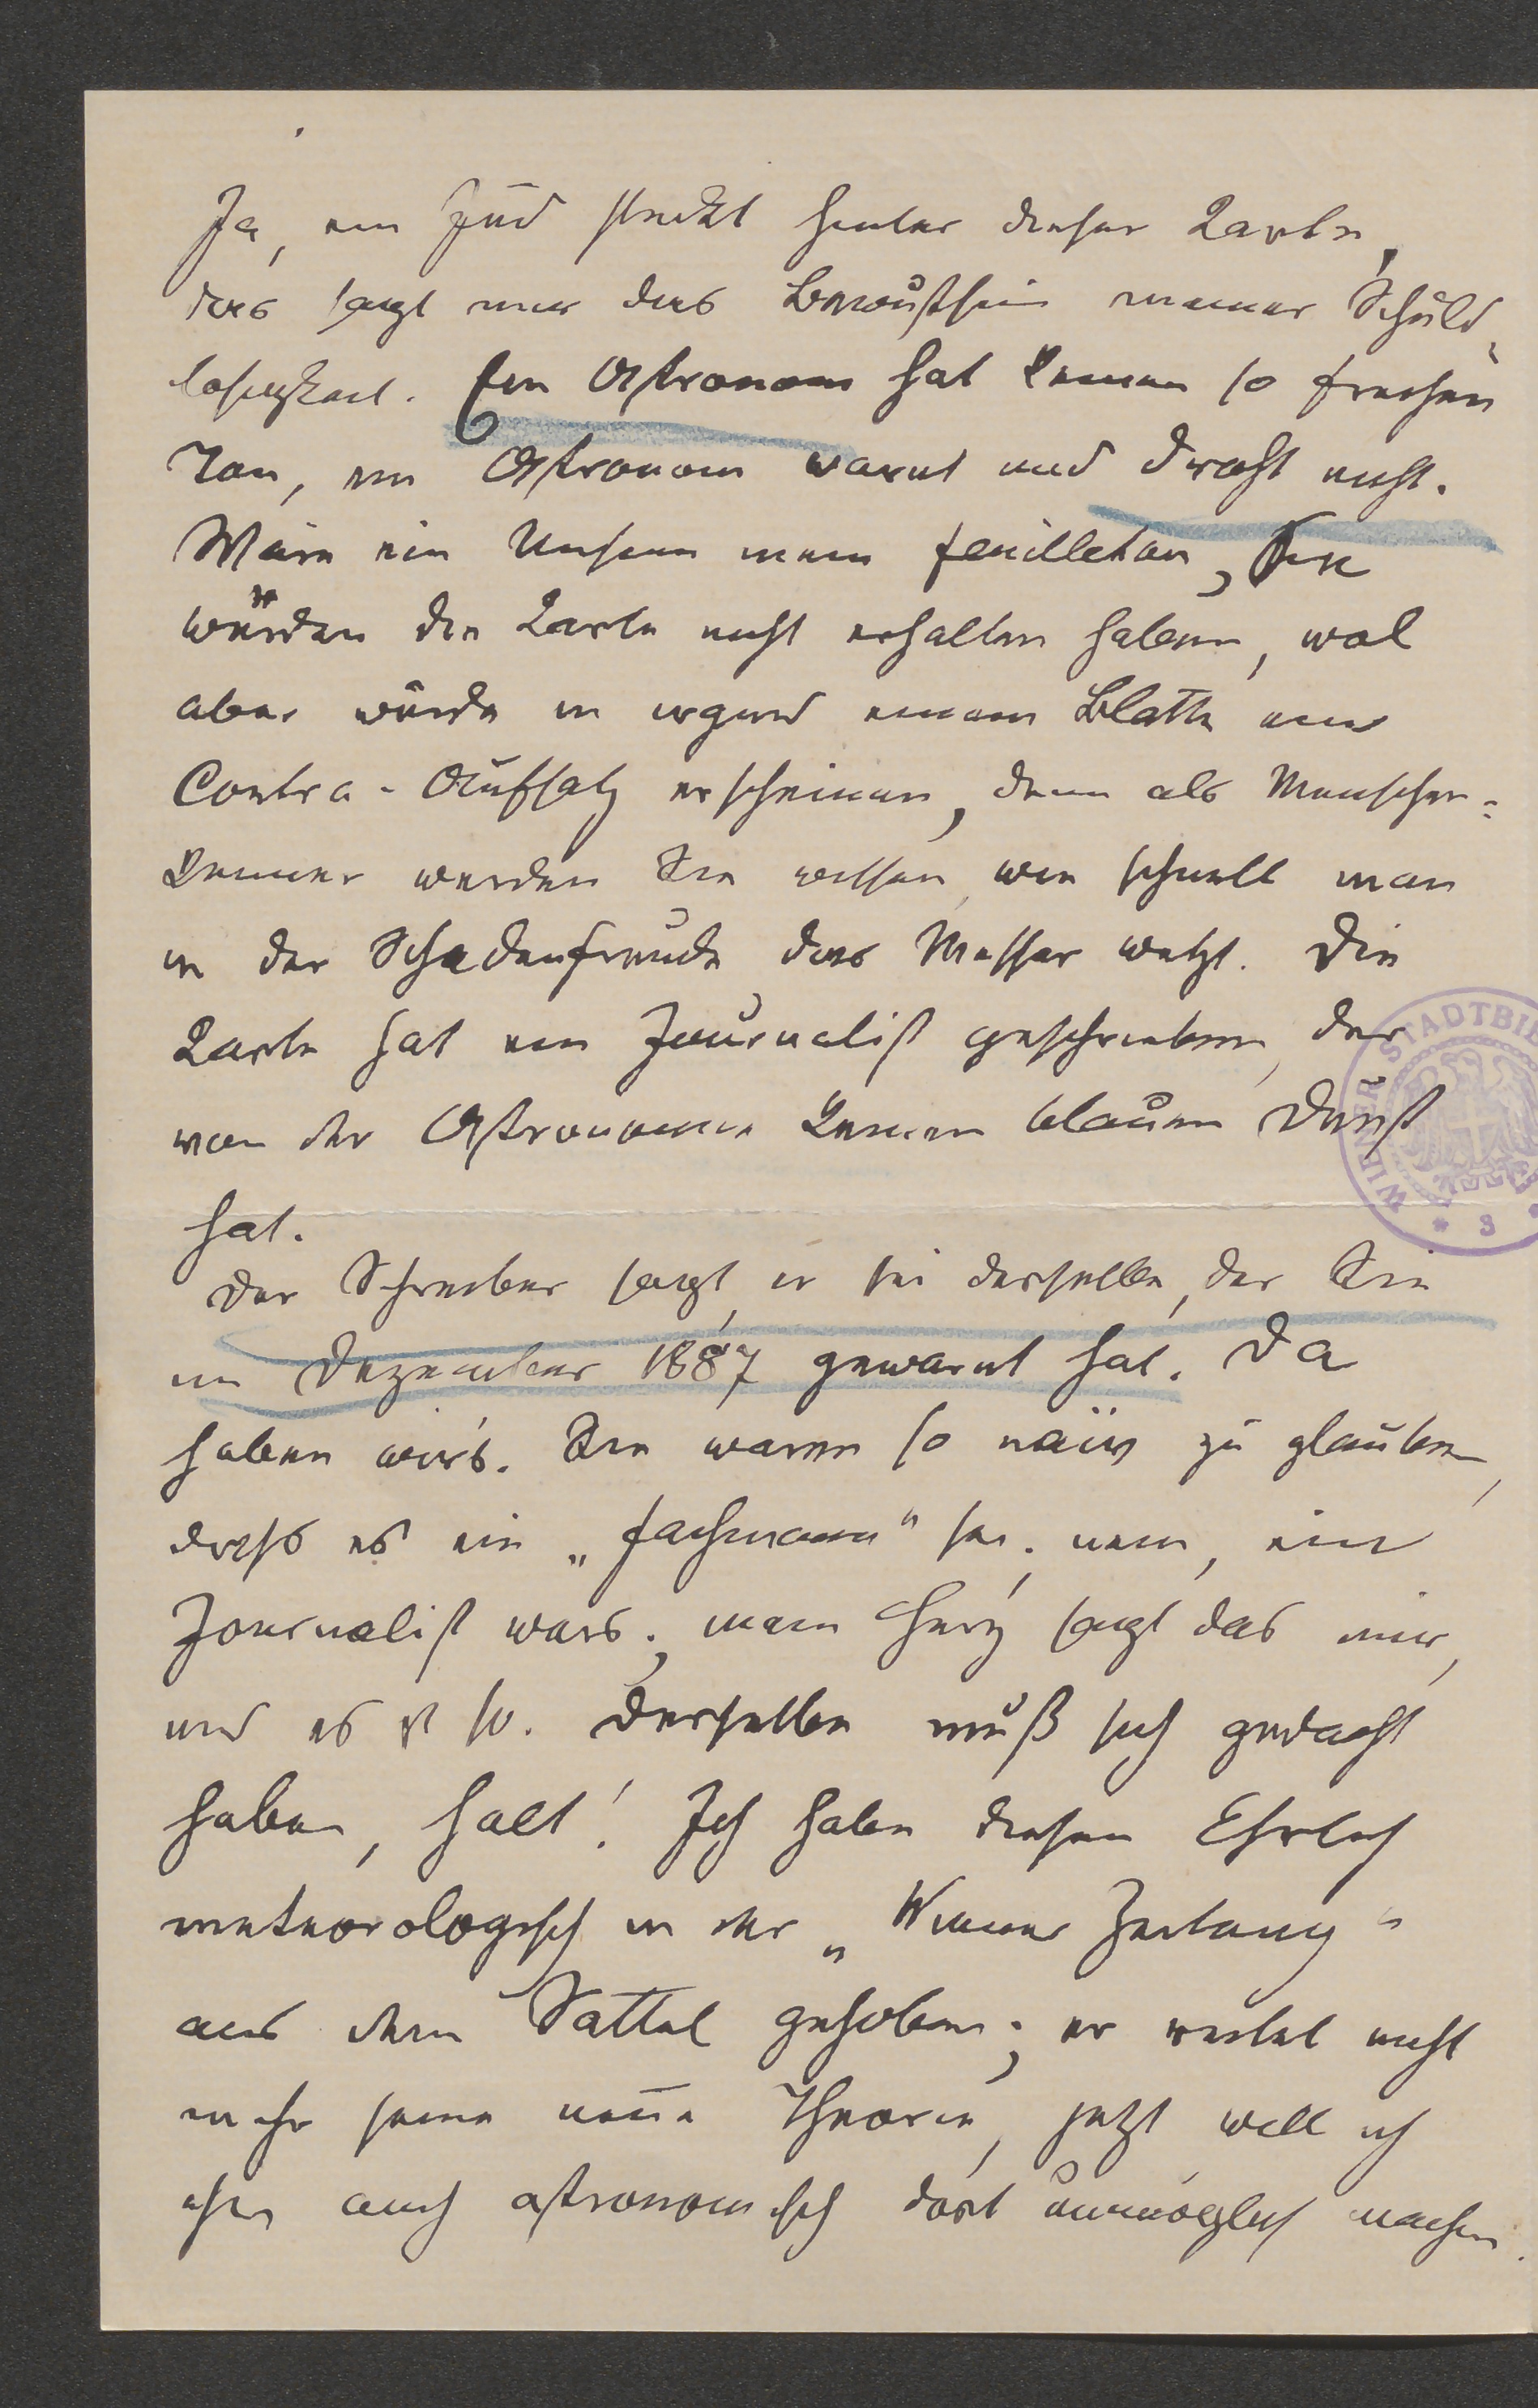 Ja, ein Jud steckt hinter dieser Karte,
das sagt mir das Bewußtsein meiner Schuld-
losigkeit. Ein Astronom hat keinen so frechen
Ton, ein Astronom warnt und droht nicht.
Wäre ein Unsinn mein Feuilleton, Sie
würden die Karte nicht erhalten haben, wol
aber würde in irgend einem Blatte ein
Contra-Aufsatz erscheinen, denn als Menschen=
kenner werden Sie wissen, wie schnell man
in der Schadenfreude das Messer wetzt. Die
Karte hat ein Journalist geschrieben, der
von der Astronomie keinen blauen Dunst
hat.
Der Schreiber sagt, er sei derselbe, der Sie
im Dezember 1887 gewarnt hat. Da
haben wir's. Sie waren so naiv zu glauben,
dass es ein „Fachmann" sei; nein, ein
Journalist wars; mein Herz sagt das mir,
und es ist so. Derselbe muß sich gedacht
haben, halt! Ich habe diesen Ehrlich
meteorologisch in der „Wiener Zeitung"
aus dem Sattel gehoben; er reitet nicht
mehr seine neue Theorie, jetzt will ich
ihn auch astronomisch dort unmöglich machen.
WIENER STADTBI
* 3 *